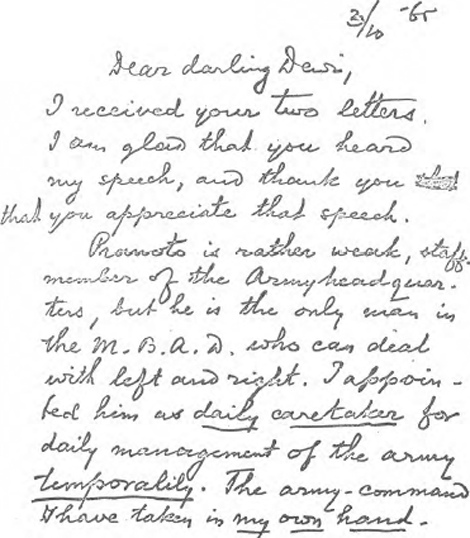 3/10 -65
Dear darling Dewi,
I received your two letters.
I am glad that you heard
my speech, and thank you
that you appreciate that speech.
Pranoto is rather weak, staff-
member of the Armyheadquar-
ters, but he is the only man in
the M.B.A.D. who can deal
with left and right. I appoin-
ted him as daily caretaker for
daily management of the army
temporalily. The army-command
I have taken in my own hand.